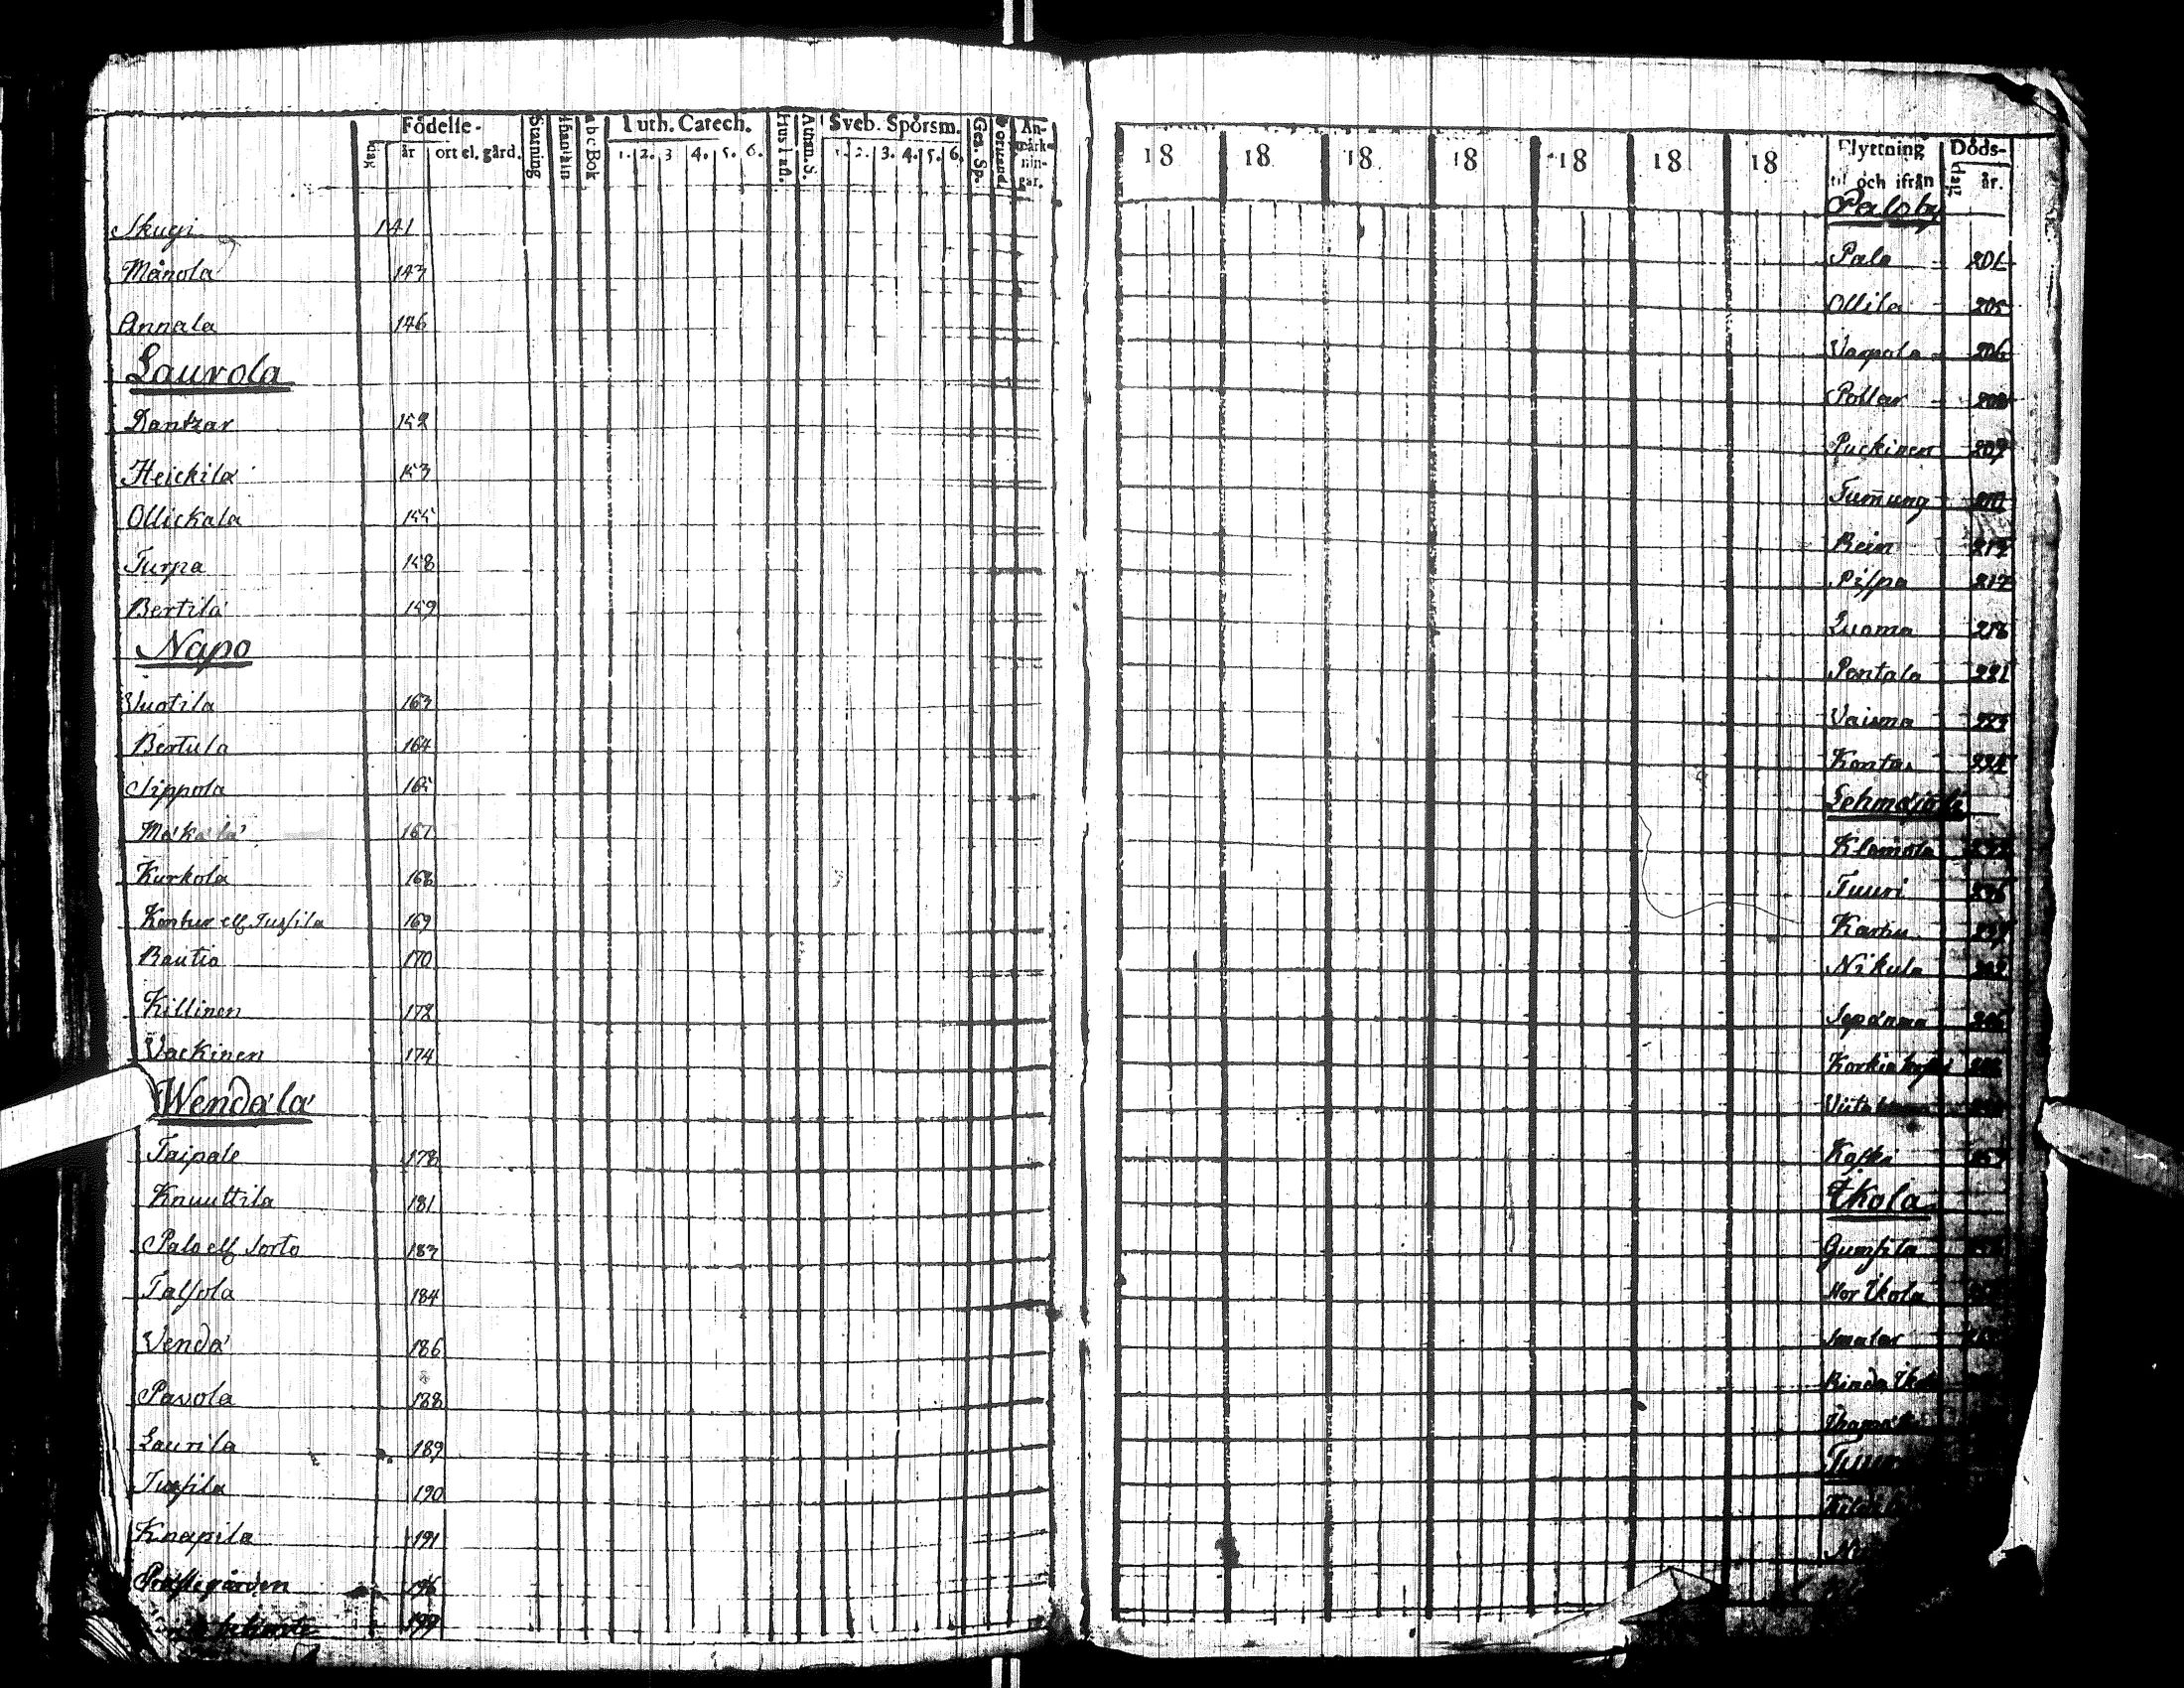 Födelse-
dag
år
ort el. gård.
abc Bok
Luth. Catech.
1. 2. 3 4. 5. 6.
Athan. S.
Sveb. Spörsm.
1. 2. 3. 4. 5. 6.
An-
märk-
nin-
gar.
Skugri 141
Månola 143
Annala 146
Laurola
Rantzar 152
Heickilä 153
Ollickala 155
Turpa 158
Bertilä 159
Napo
Vuotila 163
Bertula 164
Sippola 165
Mäkälä 167
Kurkola 168
Kontur ell. Jussila 169
Rautio 170
Killinen 172
Vackinen 174
Wendälä
Taipale 178
Knuuttila 181
Palo ell Sorto 183
Talsola 184
Vendä 186
Pavola 188
Laurila 189
Jussila 190
Knapila 191
Prästegården 196
199
18 18 18 18 18 18 18
Flyttning
til och ifrån
Döds-
dag
år.
Palo by
Palo 201
Ollila 205
Vapala 206
Pollar 208
Puckinen 209
Tum̄ung
Rein 212
Pispa 217
Luoma 218
Pentala 221
Vaisma 223
Kontas 224
Lehmäjoki
Klem̄ola
Tuuri 236
Karhu 237
Nikula
Sepänma
Korkia
Kaska
Ikola
Gumsila
Nor Ikola
Smatar
Rinda